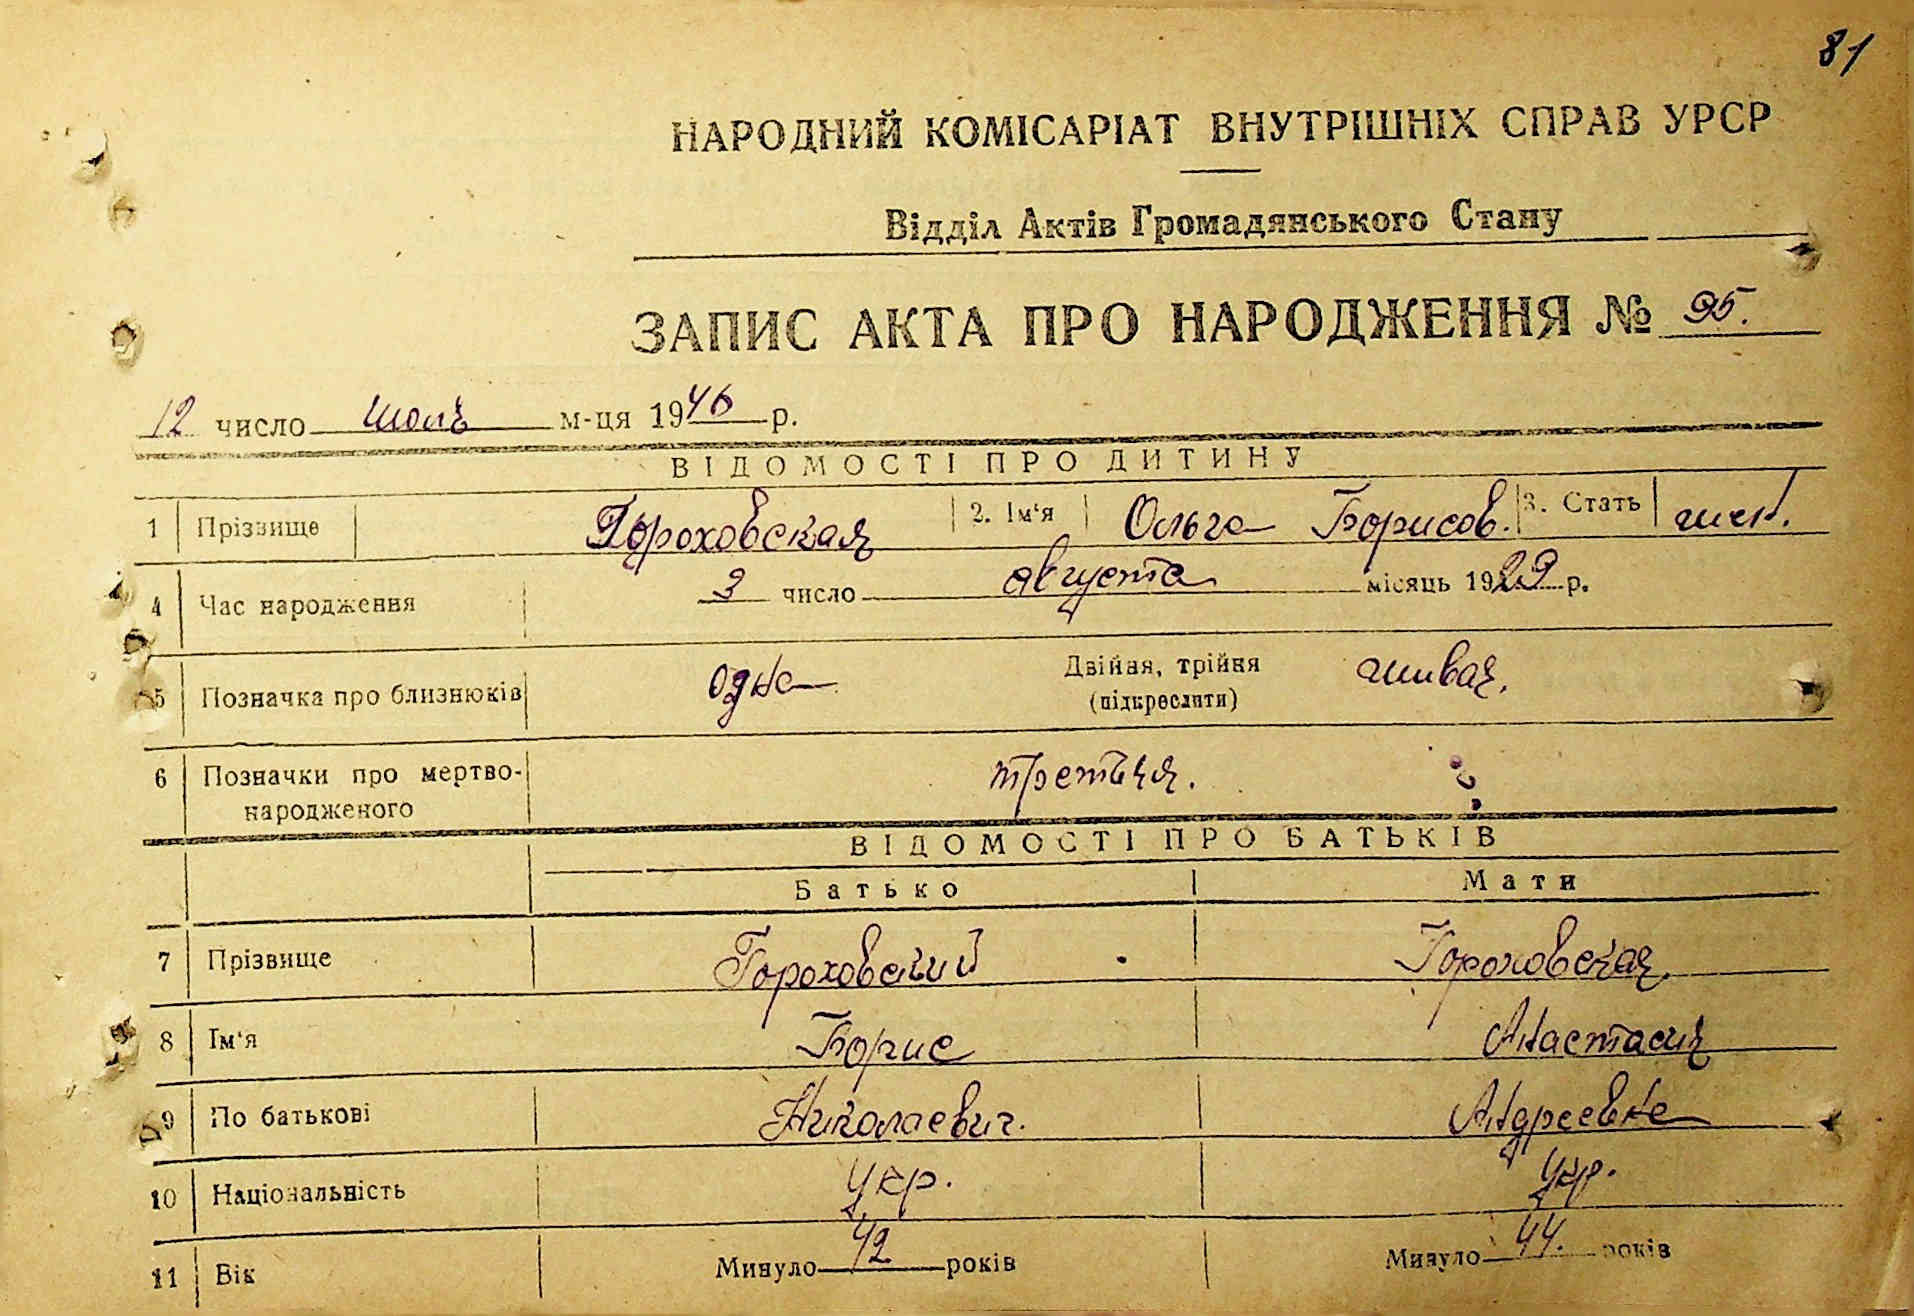 81
НАРОДНИЙ КОМІСАРІАТ ВНУТРІШНІХ СПРАВ УРСР
Відділ Актів Громадянського Стану
ЗАПИС АКТА ПРО НАРОДЖЕННЯ № 95.
12 число июль м-ця 1946 р.
ВІДОМОСТІ ПРО ДИТИНУ
1 Прізвище Гороховская 2. Ім'я Ольга Борисов. 3. Стать жен.
4 Час народження 3 число августа місяць 1929 р.
5 Позначка про близнюків одна Двійня, трійня живая.
(підкреслити)
6 Позначки про мертво- третья.
народженого
ВІДОМОСТІ ПРО БАТЬКІВ
Батько Мати
7 Прізвище Гороховский Гороховская.
8 Ім'я Борис Анастасия
9 По батькові Николаевич. Андреевна
10 Національність укр. укр.
11 Вік Минуло 42 років Минуло 44. років